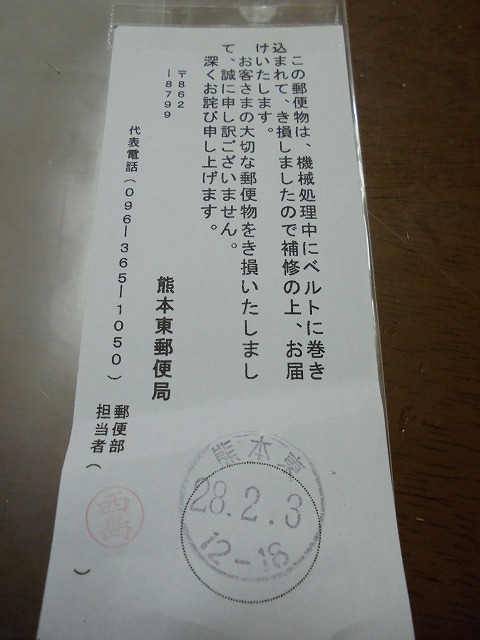 この郵便物は、機械処理中にベルトに巻き
込まれて、き損しましたので補修の上、お届
けいたします。
お客さまの大切な郵便物をき損いたしまし
て、誠に申し訳ございません。
深くお詫び申し上げます。
熊本東郵便局
〒862
―8799
代表電話(096―365―1050)
郵便部
担当者( )
西島
熊本東
28.2.3
12-18